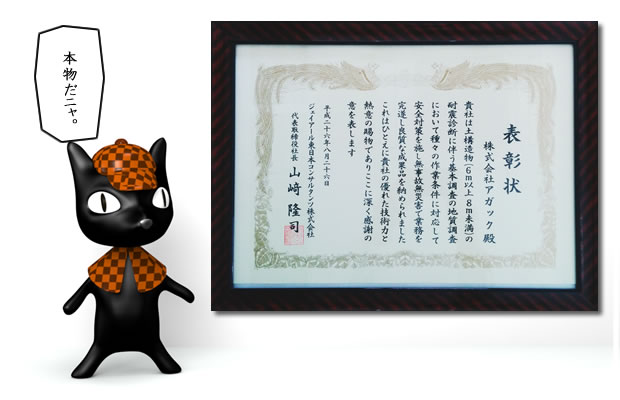 本物だニャ。
表彰状
株式会社アガック 殿
貴社は土構造物(6m以上8m未満)の
耐震診断に伴う基本調査の地質調査
において種々の作業条件に対応して
安全対策を施し無事故無災害で業務を
完遂し良質な成果品を納められました
これはひとえに貴社の優れた技術力と
熱意の賜物でありここに深く感謝の
意を表します
平成二十六年八月二十六日
ジェイアール東日本コンサルタンツ株式会社
代表取締役社長 山﨑 隆司